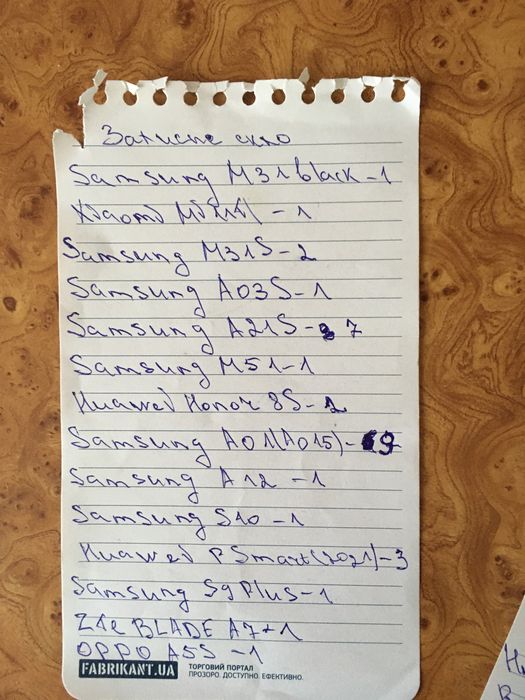 Захисне скло
Samsung M31 black - 1
Xiaomi - 1
Samsung M31S - 2
Samsung A03S - 1
Samsung A21S - 7
Samsung M51 - 1
Huawei Honor 8S - 2
Samsung A01(A015) - 9
Samsung A12 - 1
Samsung S10 - 1
Huawei P Smart(2021) - 3
Samsung S9 Plus - 1
Zte BLADE A7 - 1
OPPO A5S - 1
FABRIKANT.UA ТОРГОВИЙ ПОРТАЛ
ПРОЗОРО. ДОСТУПНО. ЕФЕКТИВНО.